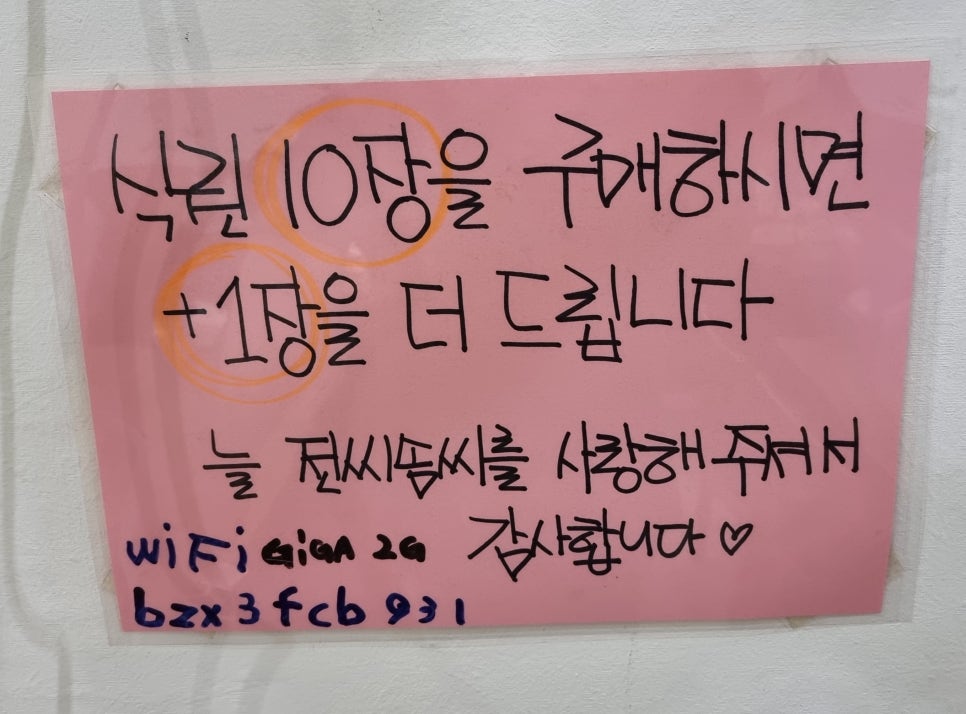 식권 10장을 구매하시면
+1장을 더 드립니다
늘 전씨솜씨를 사랑해주셔서
감사합니다♡
WiFi GiGA 2G
bzx3fcb931